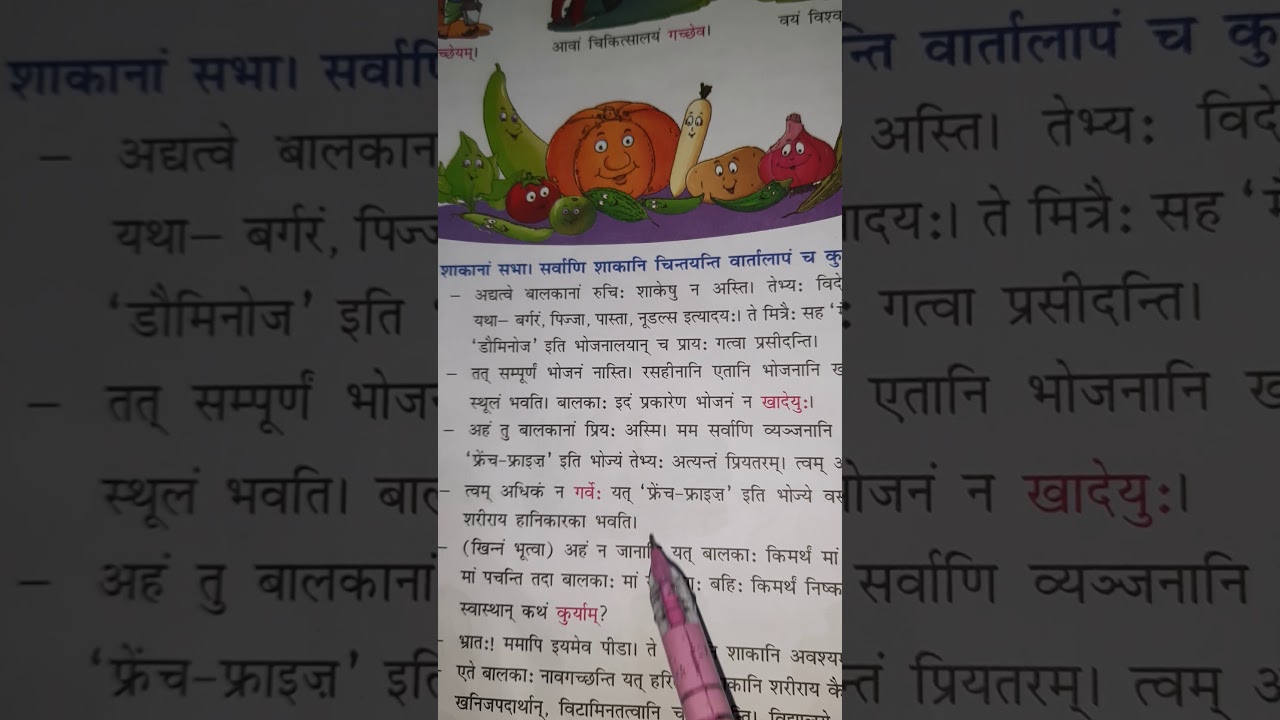 च्छेयम्।
आवां चिकित्सालयं गच्छेव।
वयं विश्व
शाकानां सभा। सर्वाणि शाकानि चिन्तयन्ति वार्तालापं च कु
– अद्यत्वे बालकानां रुचिः शाकेषु न अस्ति। तेभ्यः विदे
यथा– बर्गरं, पिज्जा, पास्ता, नूडल्स इत्यादयः। ते मित्रैः सह
‘डौमिनोज’ इति भोजनालयान् च प्रायः गत्वा प्रसीदन्ति।
– तत् सम्पूर्णं भोजनं नास्ति। रसहीनानि एतानि भोजनानि ख
स्थूलं भवति। बालकाः इदं प्रकारेण भोजनं न खादेयुः।
– अहं तु बालकानां प्रियः अस्मि। मम सर्वाणि व्यञ्जनानि
‘फ्रेंच-फ्राइज़’ इति भोज्यं तेभ्यः अत्यन्तं प्रियतरम्। त्वम् अ
– त्वम् अधिकं न गर्वेः यत् ‘फ्रेंच-फ्राइज़’ इति भोज्ये वस
शरीराय हानिकारका भवति।
– (खिन्नं भूत्वा) अहं न जानामि यत् बालकाः किमर्थं मां
मां पचन्ति तदा बालकाः मां बहिः किमर्थं निष्क
स्वास्थान् कथं कुर्याम्?
– भ्रातः! ममापि इयमेव पीडा। ते शाकानि अवश्यम
– एते बालकाः नावगच्छन्ति यत् हरि कानि शरीराय कै
खनिजपदार्थान्, विटामिनतत्वानि च